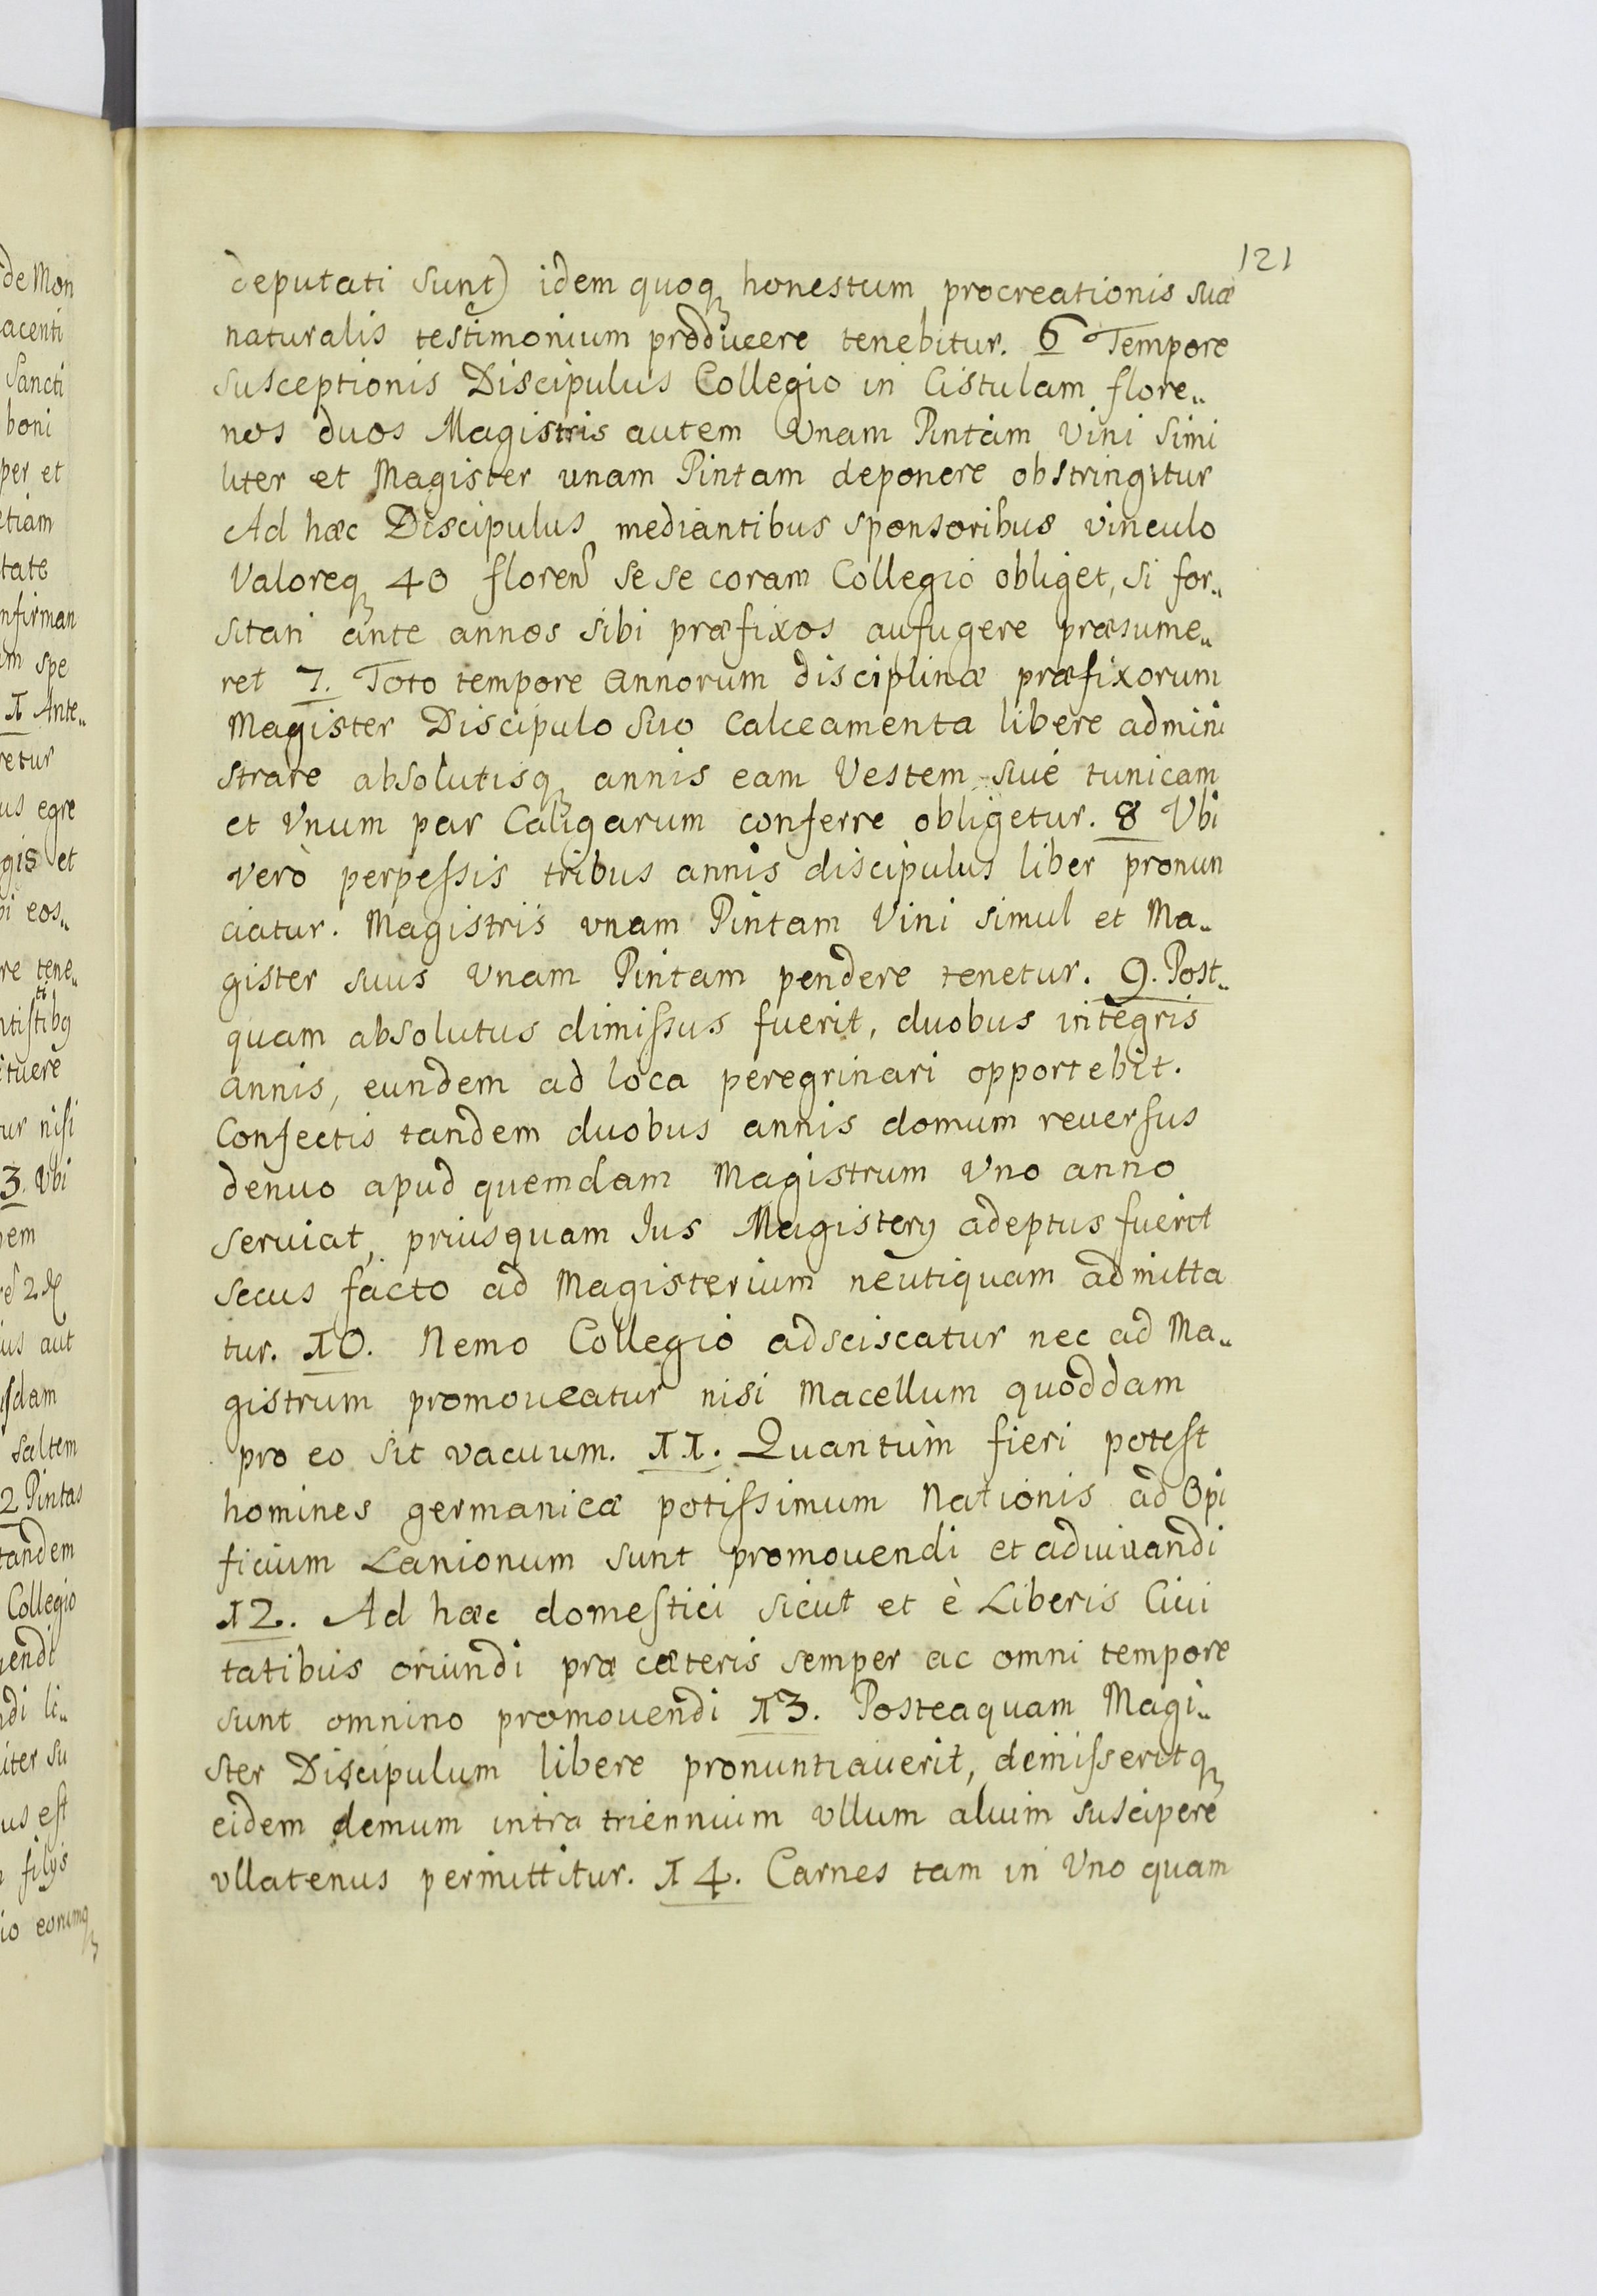 121
deputati sunt) idem quoq honestum procreationis suæ
naturalis testimonium producere tenebitur. 6 Tempore
susceptionis Discipulus Collegio in Cistulam flore„
nos duos Magistris autem Vnam Pintam Vini simi
liter et Magister unam Pintam deponere obstringitur
Ad hæc Discipulus mediantibus sponsoribus vinculo
Valoreq 40 floren sese coram Collegio obliget, si for„
sitan ante annos sibi præfixos aufugere præsume„
ret 7. Toto tempore annorum disciplinæ præfixorum
Magister Discipulo suo Calceamenta libere admini
strare absolutisq annis eam Vestem siue tunicam
et Vnum par Caligarum conferre obligetur. 8 Vbi
verò perpeſsis tribus annis discipulus liber pronun
ciatur. Magistris vnam Pintam Vini simul et Ma„
gister suus Vnam Pintam pendere tenetur. 9. Post„
quam absolutus dimiſsus fuerit, duobus integris
annis, eundem ad loca peregrinari opportebit.
Confectis tandem duobus annis domum reuerſus
denuo apud quemdam Magistrum Vno anno
seruiat, priusquam Jus Magistery adeptus fuerit
secus facto ad Magisterium neutiquam admitta
tur. 10. Nemo Collegio adsciscatur nec ad Ma„
gistrum promoueatur nisi Macellum quoddam
pro eo sit vacuum. 11. Quantùm fieri poteſt
homines germanicæ potiſsimum Nationis ad Opi
ficium Lanionum sunt promouendi et adiuuandi
12. Ad hæc domeſtici sicut et è Liberis Ciui
tatibus oriundi præ cæteris semper ac omni tempore
sunt omnino promouendi 13. Posteaquam Magi„
ster Discipulum libere pronuntiauerit, demiſseritq
eidem demum intra triennium vllum alium suscipere
vllatenus permittitur. 14. Carnes tam in Vno quam